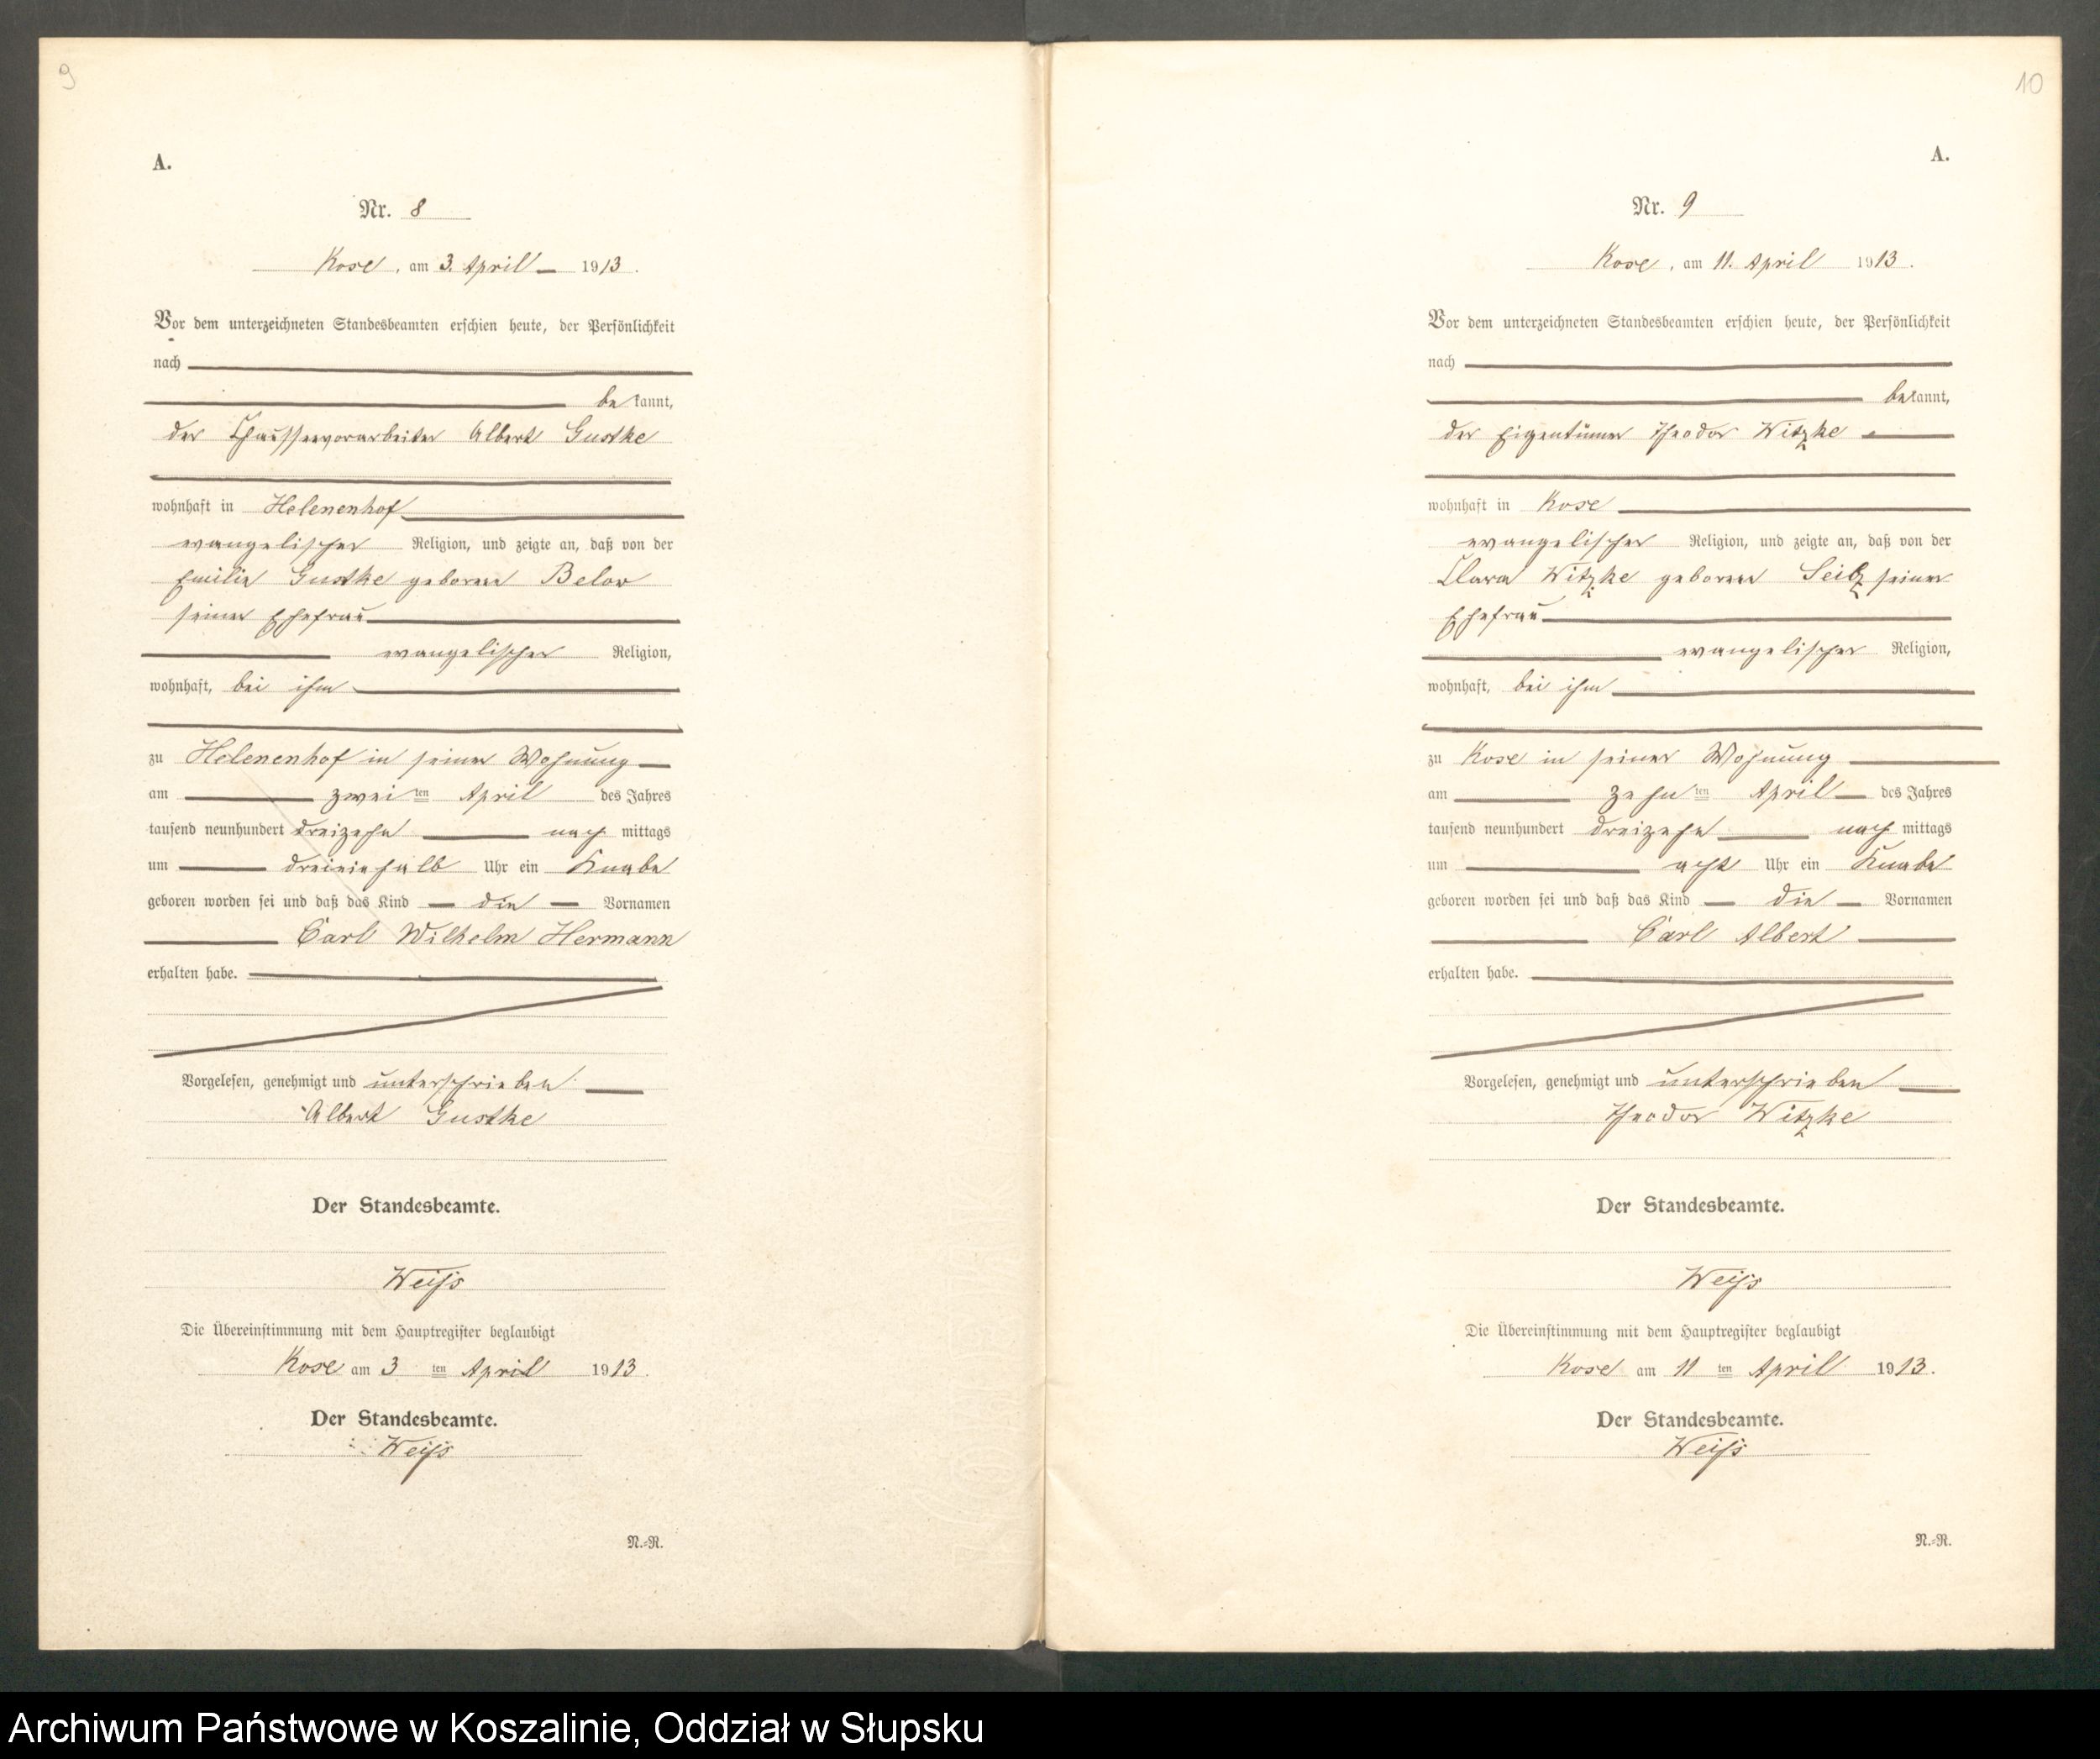 9
A.
Nr. 8
Kose, am 3. April 1913.
Vor dem unterzeichneten Standesbeamten erschien heute, der Persönlichkeit
nach
bekannt,
der Chausseevorarbeiter Albert Gustke
wohnhaft in Helenenhof
evangelischer Religion, und zeigte an, daß von der
Emilie Gustke geborene Below
seiner Ehefrau
evangelischer Religion,
wohnhaft, bei ihm
zu Helenenhof in seiner Wohnung
am zweiten April des Jahres
tausend neunhundert dreizehn nachmittags
um dreieinhalb Uhr ein Knabe
geboren worden sei und daß das Kind die Vornamen
Carl Wilhelm Hermann
erhalten habe.
Vorgelesen, genehmigt und unterschrieben
Albert Gustke
Der Standesbeamte.
Weiss
Die Übereinstimmung mit dem Hauptregister beglaubigt
Kose am 3 ten April 1913.
Der Standesbeamte.
Weiss
N.-R.
10
A.
Nr. 9
Kose, am 11. April 1913.
Vor dem unterzeichneten Standesbeamten erschien heute, der Persönlichkeit
nach
bekannt,
der Eigentümer Theodor Witzke
wohnhaft in Kose
evangelischer Religion, und zeigte an, daß von der
Clara Witzke geborene seiner
Ehefrau
evangelischer Religion,
wohnhaft, bei ihm
zu Kose in seiner Wohnung
am zehnten April des Jahres
tausend neunhundert dreizehn nachmittags
um acht Uhr ein Knabe
geboren worden sei und daß das Kind die Vornamen
Carl Albert
erhalten habe.
Vorgelesen, genehmigt und unterschrieben
Theodor Witzke
Der Standesbeamte.
Weiss
Die Übereinstimmung mit dem Hauptregister beglaubigt
Kose am 11 ten April 1913.
Der Standesbeamte.
Weiss
N.-R.
Archiwum Państwowe w Koszalinie, Oddział w Słupsku